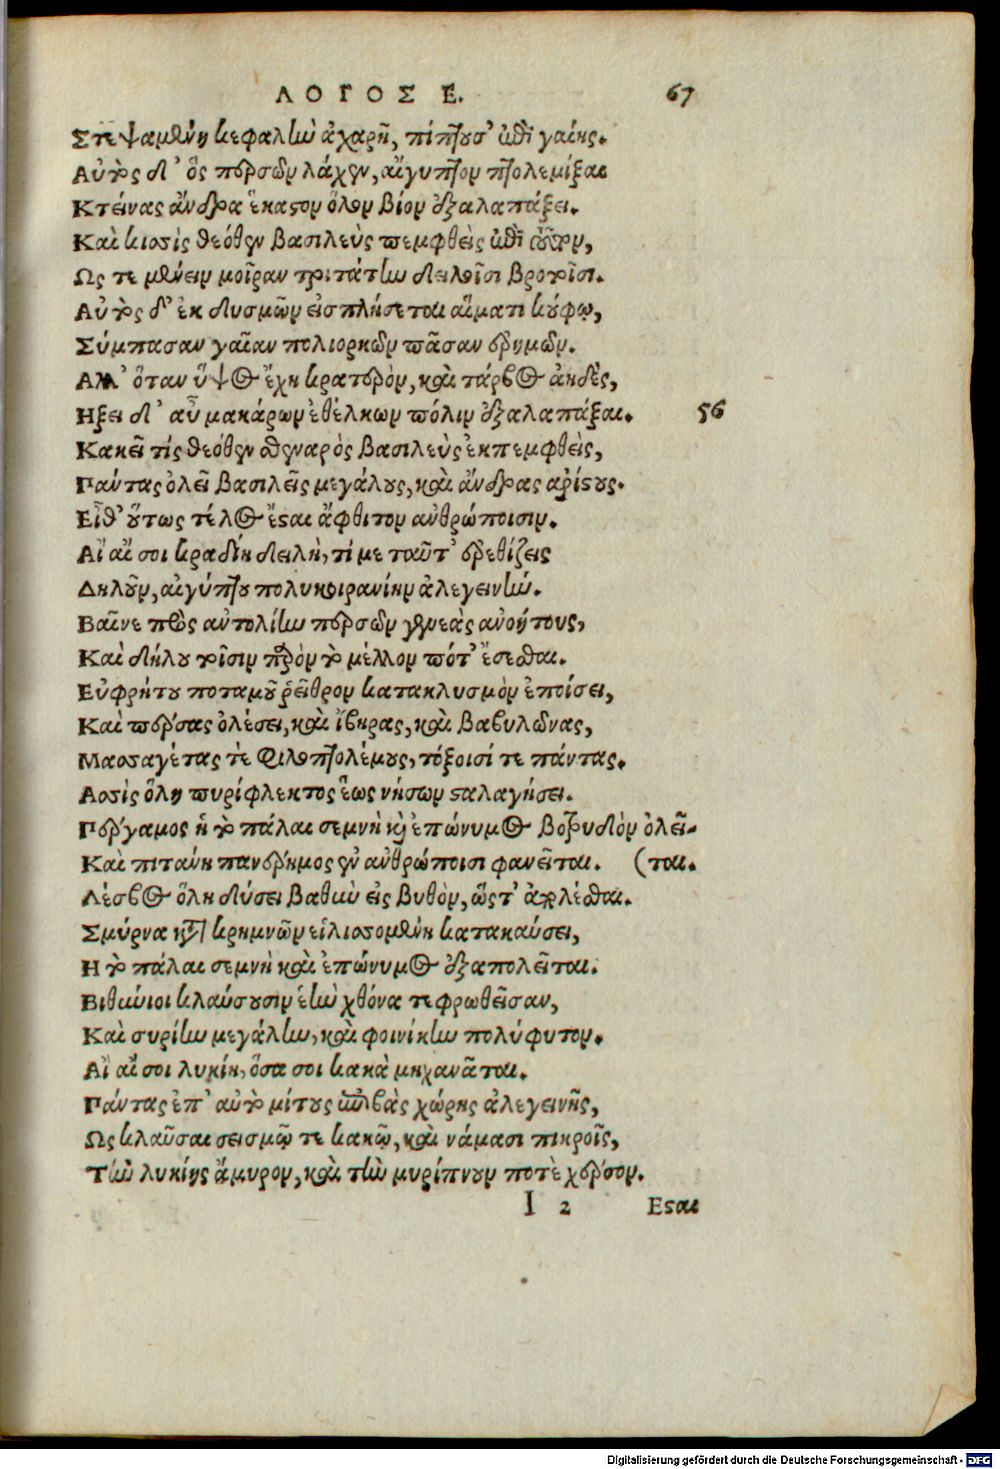 ΛΟΓΟΣ Ε. 67
Στεψαμένη κεφαλὴν ἀχαρῆ, πίπτουσ' ἐπὶ γαίης.
Αὐτὸς δ' ὃς περσῶν λάχεν, αἴγυπτον πτολεμίξαι
Κτείνας ἄνδρα ἕκαστον ὅλον βίον ἐξαλαπάξει.
Καὶ κιοσὶς θεόθεν βασιλεὺς πεμφθεὶς ἐπὶ
Ὥς τε μένειν μοῖραν τριτάτην δειλοῖσι βροτοῖσι.
Αὐτὸς δ' ἐκ δυσμῶν εἰσπλήσεται αἵματι κούφῳ,
Σύμπασαν γαῖαν πολιορκῶν πᾶσαν ἐρημῶν.
Ἀλλ' ὅταν ὕψος ἔχῃ κρατερὸν, καὶ τάρβος ἀηδὲς,
Ηξει δ' αὖ μακάρων ἐθέλκων πόλιν ἐξαλαπάξαι. 56
Κακεῖ τίς θεόθεν σθεναρὸς βασιλεὺς ἐκπεμφθεὶς,
Πάντας ὀλεῖ βασιλεῖς μεγάλους, καὶ ἄνδρας ἀρίστους.
Εἶθ' οὕτως τέλος ἔσται ἄφθιτον ἀνθρώποισιν.
Αἲ αἴ σοι κραδίη δειλὴ, τί με ταῦτ' ἐρεθίζεις
Δηλοῦν, αἰγύπτου πολυκοιρανίην ἀλεγεινήν.
Βαῖνε πρὸς ἀντολίην περσῶν γενεὰς ἀνοήτους,
Καὶ δήλου τοῖσιν παρὸν τὸ μέλλον πότ' ἔσεσθαι.
Εὐφρήτου ποταμοῦ ῥεῖθρον κατακλυσμὸν ἐποίσει,
Καὶ πέρσας ὀλέσει, καὶ ἴβηρας, καὶ βαβυλῶνας,
Μασσαγέτας τὲ φιλοπτολέμους, τόξοισί τε πάντας.
Ασσὶς ὅλη πυρίφλεκτος ἕως νήσων σταλαγήσει.
Πέργαμος ἡ τὸ πάλαι σεμνὴ καὶ ἐπώνυμος βοτρυδὸν ὀλεῖ-
Καὶ πιτάνη πανέρημος ἐν ἀνθρώποισι φανεῖται. (ται.
Λέσβος ὅλη δύσει βαθὺν εἰς βυθὸν, ὥστ' ἀπολέσθαι.
Σμύρνα κατὰ κρημνῶν εἱλισσομένη κατακαύσει,
Η τὸ πάλαι σεμνὴ καὶ ἐπώνυμος ἐξαπολεῖται.
Βιθύνιοι κλαύσουσιν ἑὴν χθόνα τεφρωθεῖσαν,
Καὶ συρίην μεγάλην, καὶ φοινίκην πολύφυτον.
Αἲ αἴ σοι λυκίη, ὅσα σοι κακὰ μηχανᾶται.
Πάντας ἐπ' αὐτὸ μίτους ἐπιβὰς χώρης ἀλεγεινῆς,
Ὡς κλαῦσαι σεισμῷ τε κακῷ, καὶ νάμασι πικροῖς,
Τὴν λυκίης ἄμυρον, καὶ τὴν μυρίπνουν ποτὲ χέρσον.
I 2 Εσται
Digitalisierung gefördert durch die Deutsche Forschungsgemeinschaft - DFG